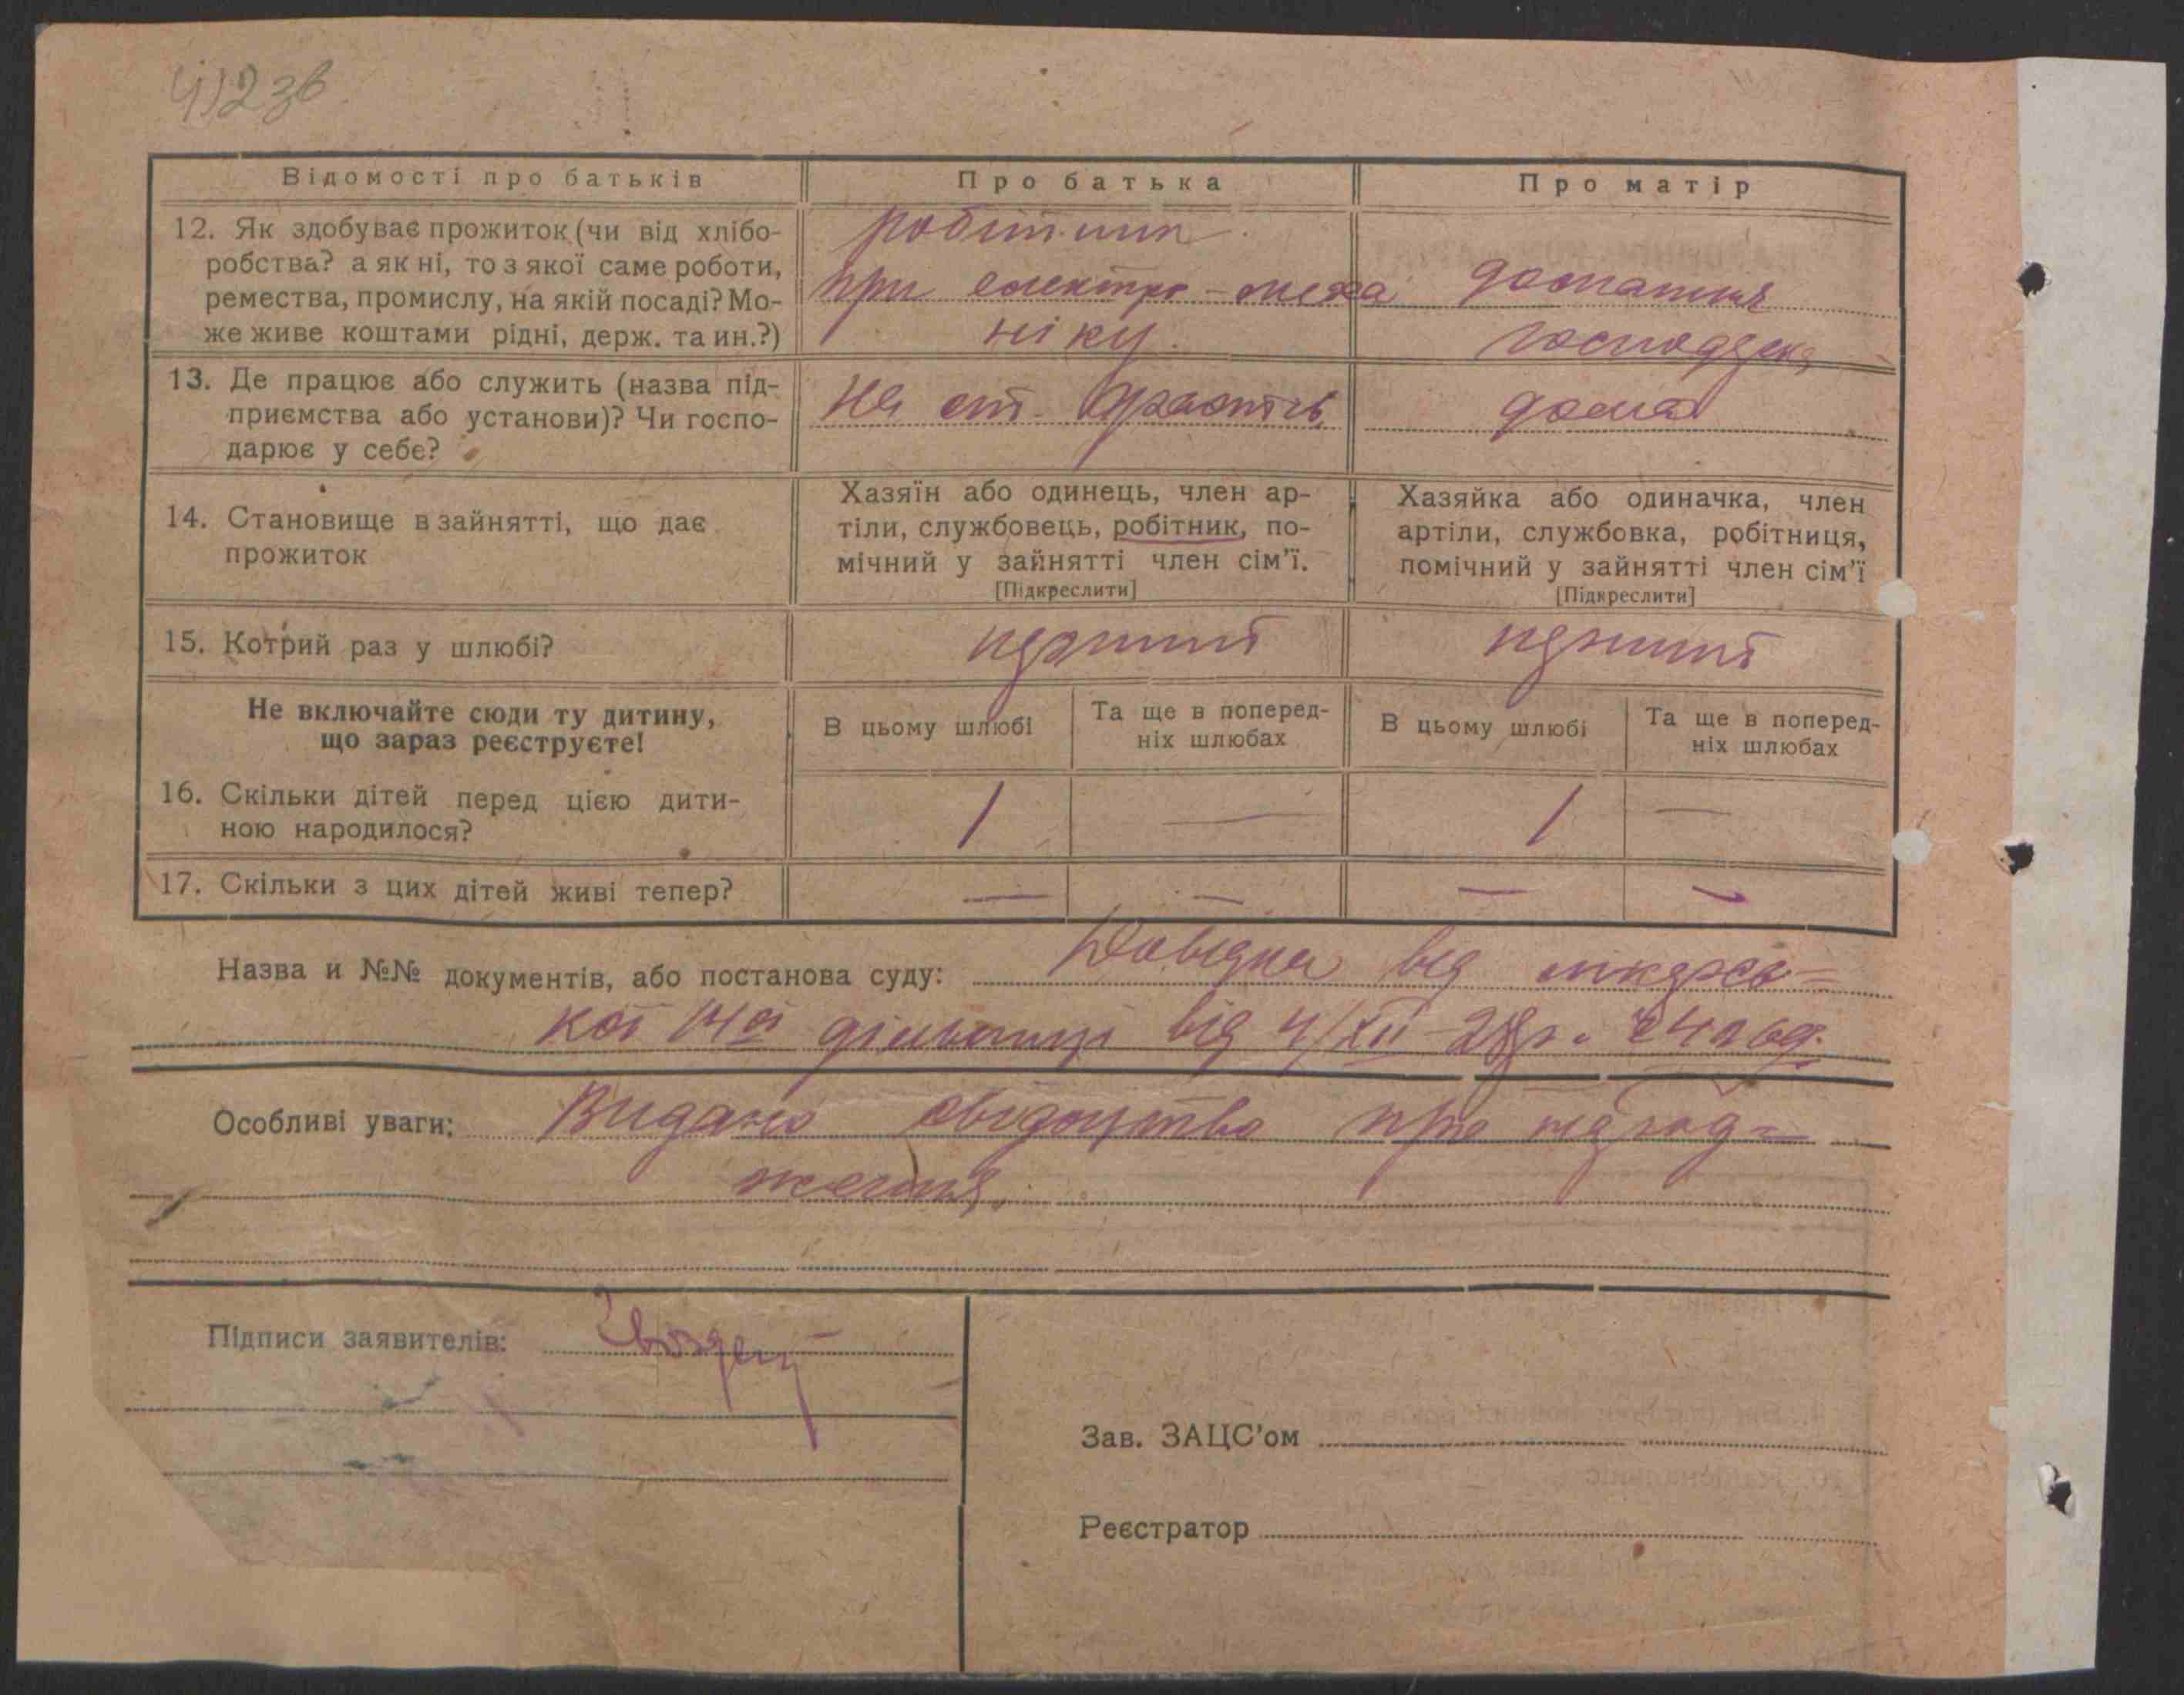 Відомості про батьків
Про батька
Про матір
12. Як здобуває прожиток (чи від хлібо-
робства? а як ні, то з якої саме роботи,
ремества, промислу, на якій посаді? Мо-
же живе коштами рідні, держ. та ин.?)
робітник
при електро-меха
ніку
домашня
господарка
13. Де працює або служить (назва під-
приємства або установи)? Чи госпо-
дарює у себе?
На ст.
дома
14. Становище в зайнятті, що дає
прожиток
Хазяїн або одинець, член ар-
тіли, службовець, робітник, по-
мічний у зайнятті член сім'ї.
[Підкреслити]
Хазяйка або одиначка, член
артіли, службовка, робітниця,
помічний у зайнятті член сім'ї
[Підкреслити]
15. Котрий раз у шлюбі?
перший
перший
Не включайте сюди ту дитину,
що зараз реєструєте!
В цьому шлюбі
Та ще в поперед-
ніх шлюбах
В цьому шлюбі
Та ще в поперед-
ніх шлюбах
16. Скільки дітей перед цією дити-
ною народилося?
1
—
1
—
17. Скільки з цих дітей живі тепер?
—
—
—
—
Назва и №№ документів, або постанова суду: Довідка від лікарсь=
кої 14ої дільниці від 4/XII-28р.
Особливі уваги: Видано свідоцтво про народ=
ження.
Підписи заявителів:
Зав. ЗАЦС'ом
Реєстратор